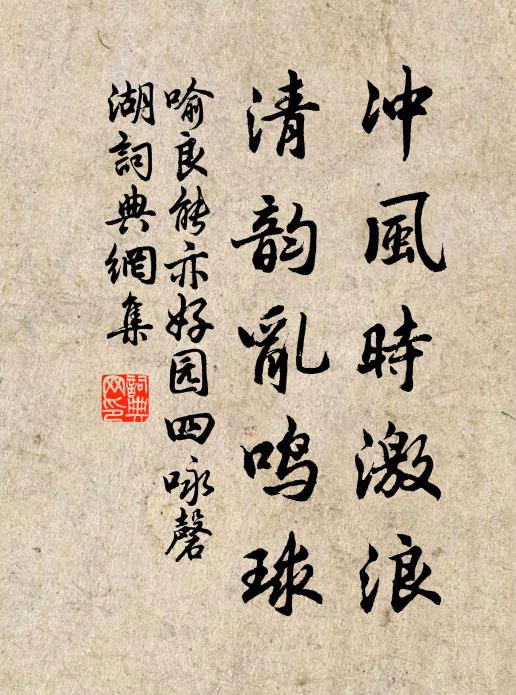 冲風時激浪
清韵亂鸣球
喻良能亦好园四咏磬
湖詞典網集
詞典网印